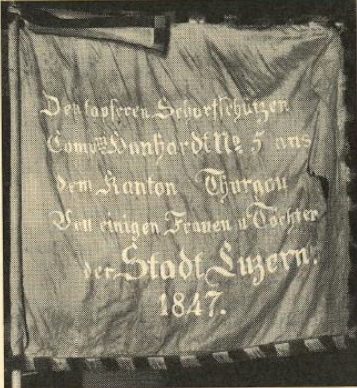 Den tapferen Scharfschützen
Compnie Kanhardt No. 5 aus
dem Kanton Thurgau
Von einigen Frauen u Töchter
der Stadt Luzern.
1847.